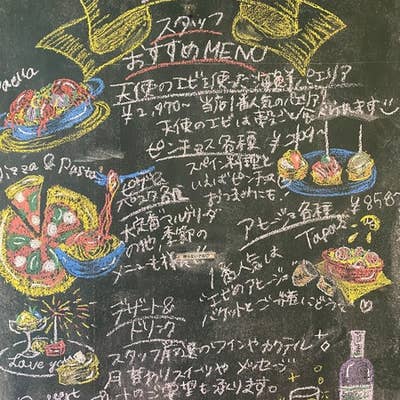 スタッフ
おすすめMENU
Paella
天使のエビを使った海鮮パエリア
¥2,970- 当店1番人気のパエリア!
天使のエビは頭ごと食べられます
ピンチョス各種
スペイン料理と
いえばピンチョス
おつまみにも!
Pizza & Pasta
ピザ&
パスタ各種
大定番マルゲリータ
の他、季節の
メニューも様々!
アヒージョ各種 ¥858-
Tapas
1番人気は
エビのアヒージョ
バケットとご一緒にどうぞ
デザート&
ドリンク
Love you
スタッフ厳選のワインやカクテル
日替わりスイーツやメッセージ
プレートのご要望も承ります。
Dessert